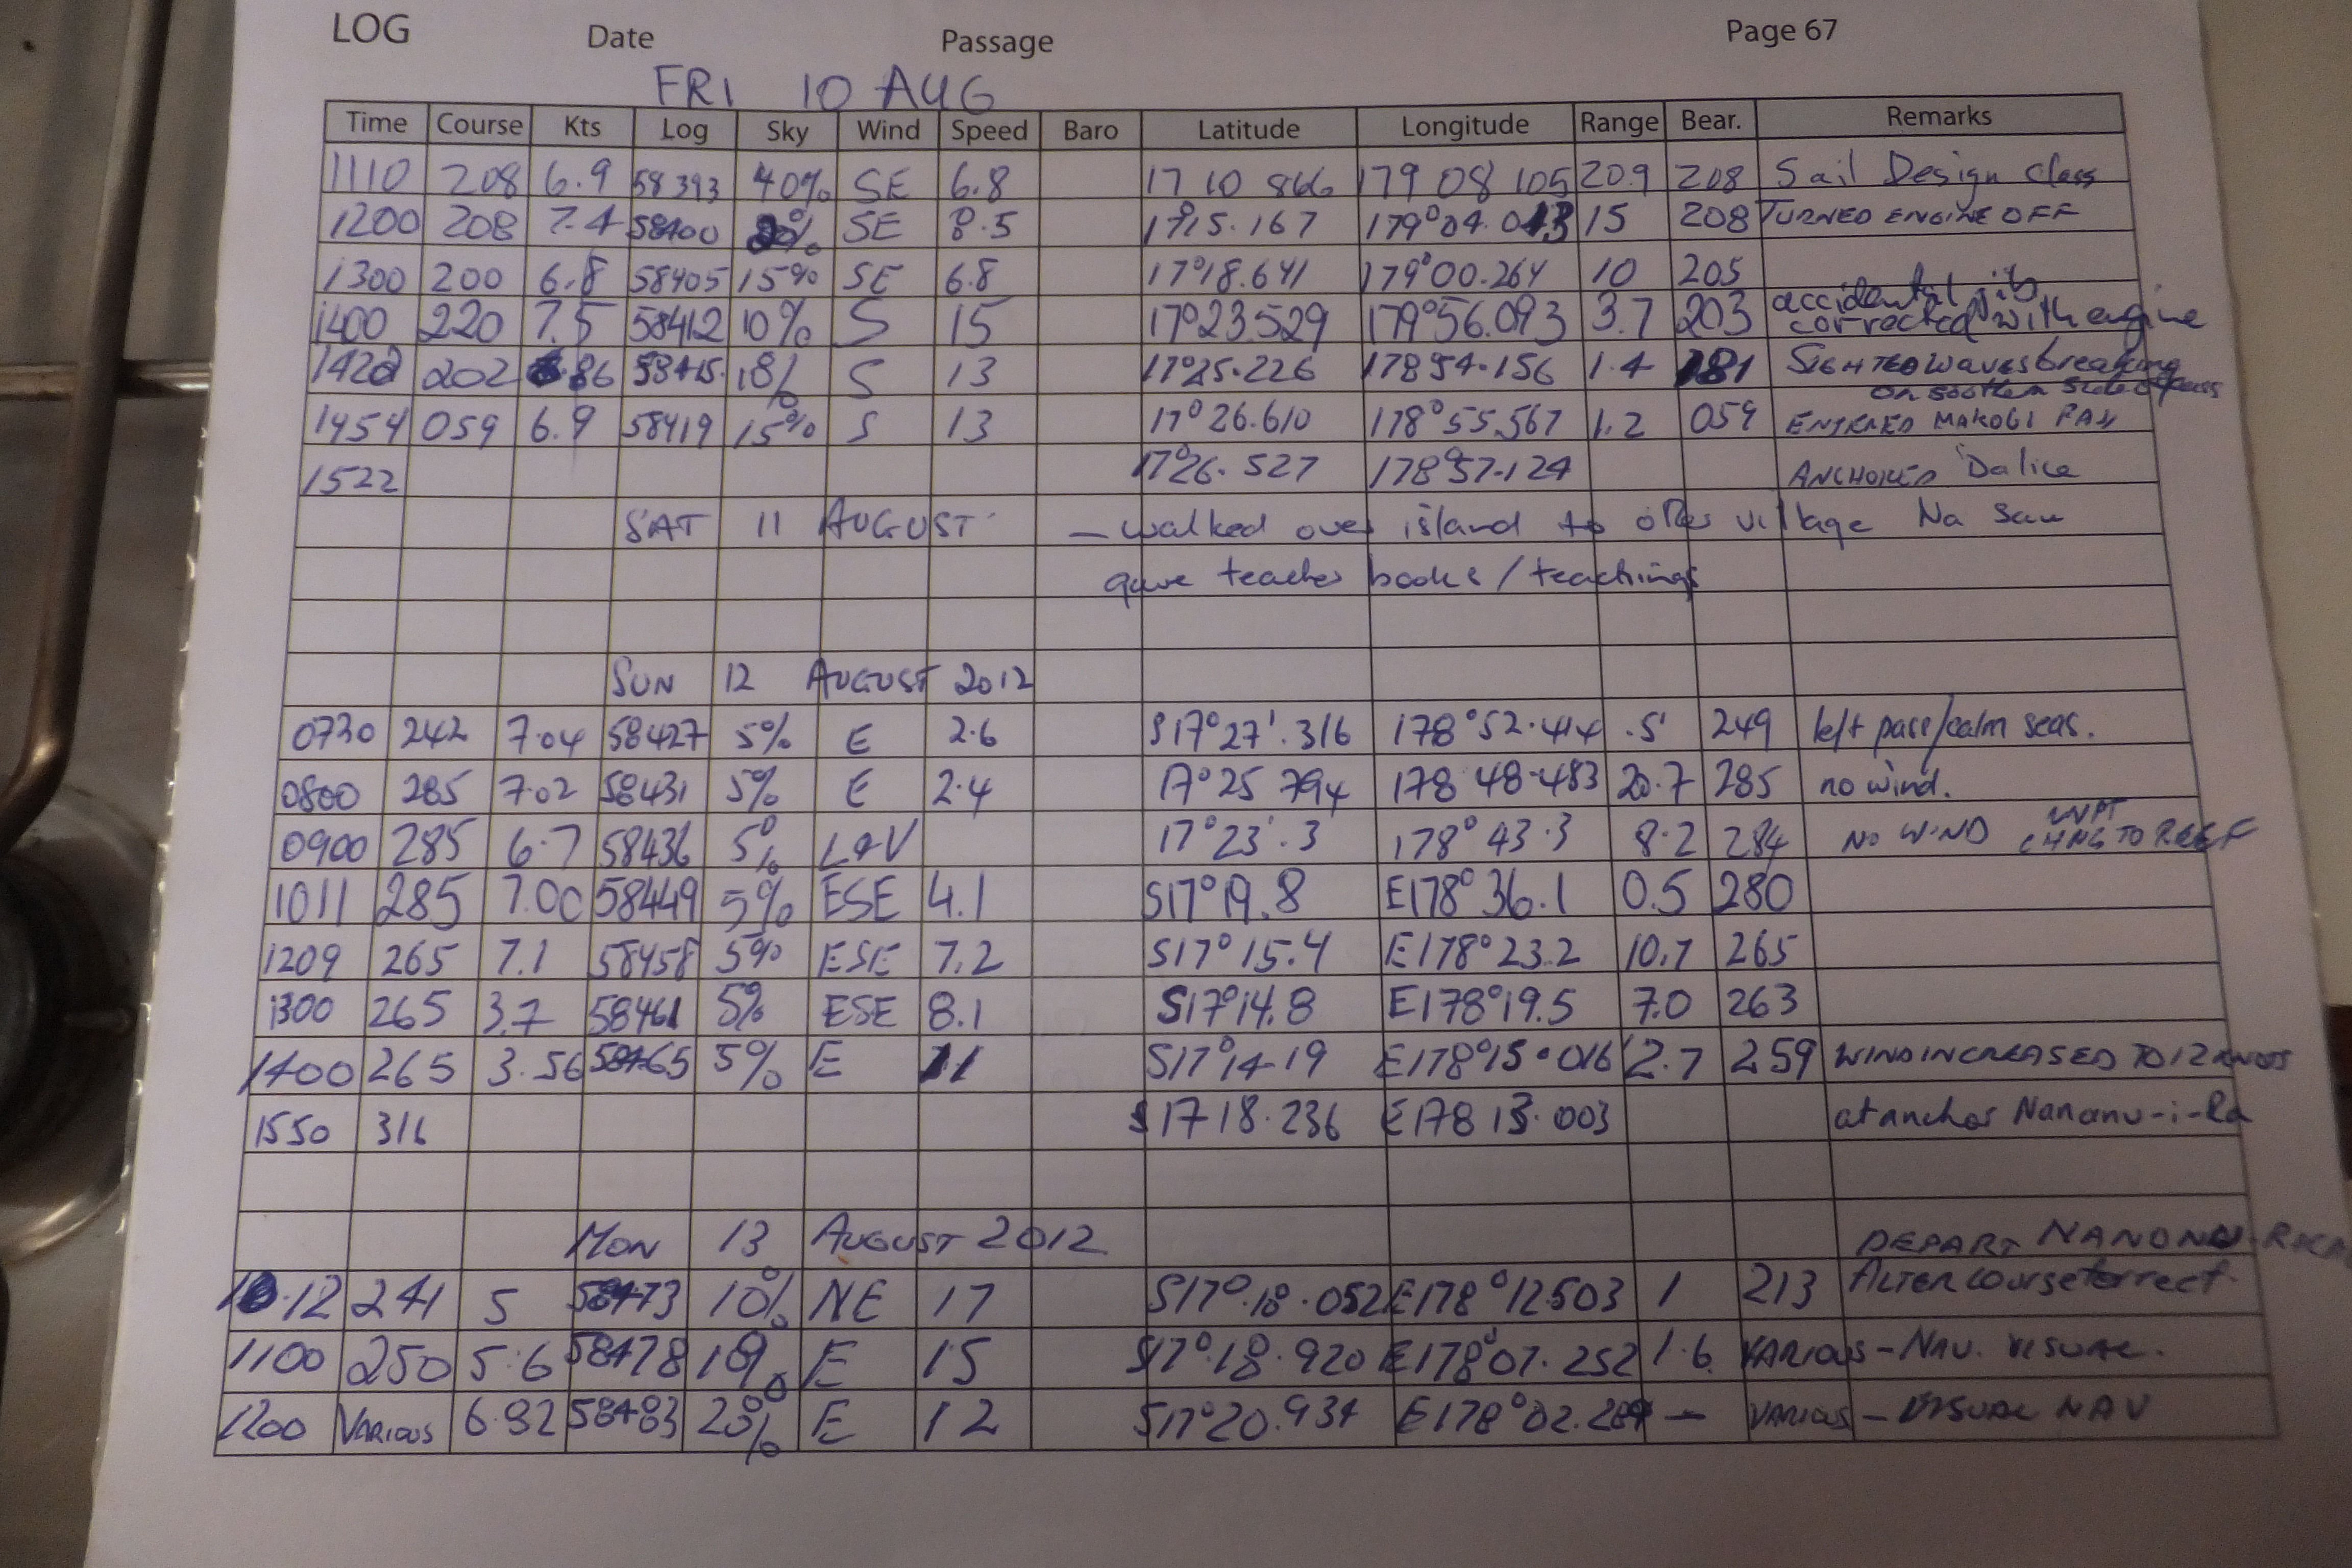 LOG Date Passage Page 67
FRI 10 AUG
Time Course Kts Log Sky Wind Speed Baro Latitude Longitude Range Bear. Remarks
1110 208 6.9 58393 40% SE 6.8 17 10 866 179 08 105 20.9 208 Sail Design Class
1200 208 7.4 58400 SE 8.5 17°15.167 179°04.013 15 208 TURNED ENGINE OFF
1300 200 6.8 58405 15% SE 6.8 17°18.641 179°00.264 10 205
accidental jib
1400 220 7.5 58412 10% S 15 17°23.529 179°56.093 3.7 203 corrected with engine
1420 202 58415. 18% S 13 17°25.226 178 54.156 1.4 181 SIGHTED waves breaking
on southern side of pass
1454 059 6.9 58419 15% S 13 17° 26.610 178°55.567 1.2 059 ENTERED MAKOGI PASS
1522 17°26.527 178°57.124 ANCHORED Dalice
SAT 11 AUGUST — walked over island to other village Na Sau
gave teacher books/teachings
SUN 12 AUGUST 2012
0730 242 7.04 58427 5% E 2.6 S17°27'.316 178°52.414 .5' 249 left pass/calm seas.
0800 285 7.02 58431 5% E 2.4 17°25 794 178 48.483 20.7 285 no wind.
WPT
0900 285 6.7 58436 5% L&V 17°23'.3 178°43.3 8.2 284 NO WIND CHNG TO REEF
1011 285 7.00 58449 5% ESE 4.1 S17°19.8 E178°36.1 0.5 280
1209 265 7.1 58458 5% ESE 7.2 S17°15.4 E178°23.2 10.7 265
1300 265 3.7 58461 5% ESE 8.1 S17°14.8 E178°19.5 7.0 263
1400 265 3.56 58465 5% E 11 S17°14.19 E178°15.016 2.7 259 WIND INCREASED TO 12 KNOTS
1550 316 S17 18.236 E178 13.003 at anchor Nananu-i-Ra
MON 13 AUGUST 2012 DEPART NANONU-RA
10.12 241 5 58473 10% NE 17 S17°.18.052 E178°12.503 1 213 ALTER course
1100 250 5.6 58478 10% E 15 S17°.18.920 E178°07.252 1.6 VARIOUS - NAV. VISUAL.
1200 VARIOUS 6.92 58483 20% E 12 S17°20.934 E178°02.289 — VARIOUS - VISUAL NAV